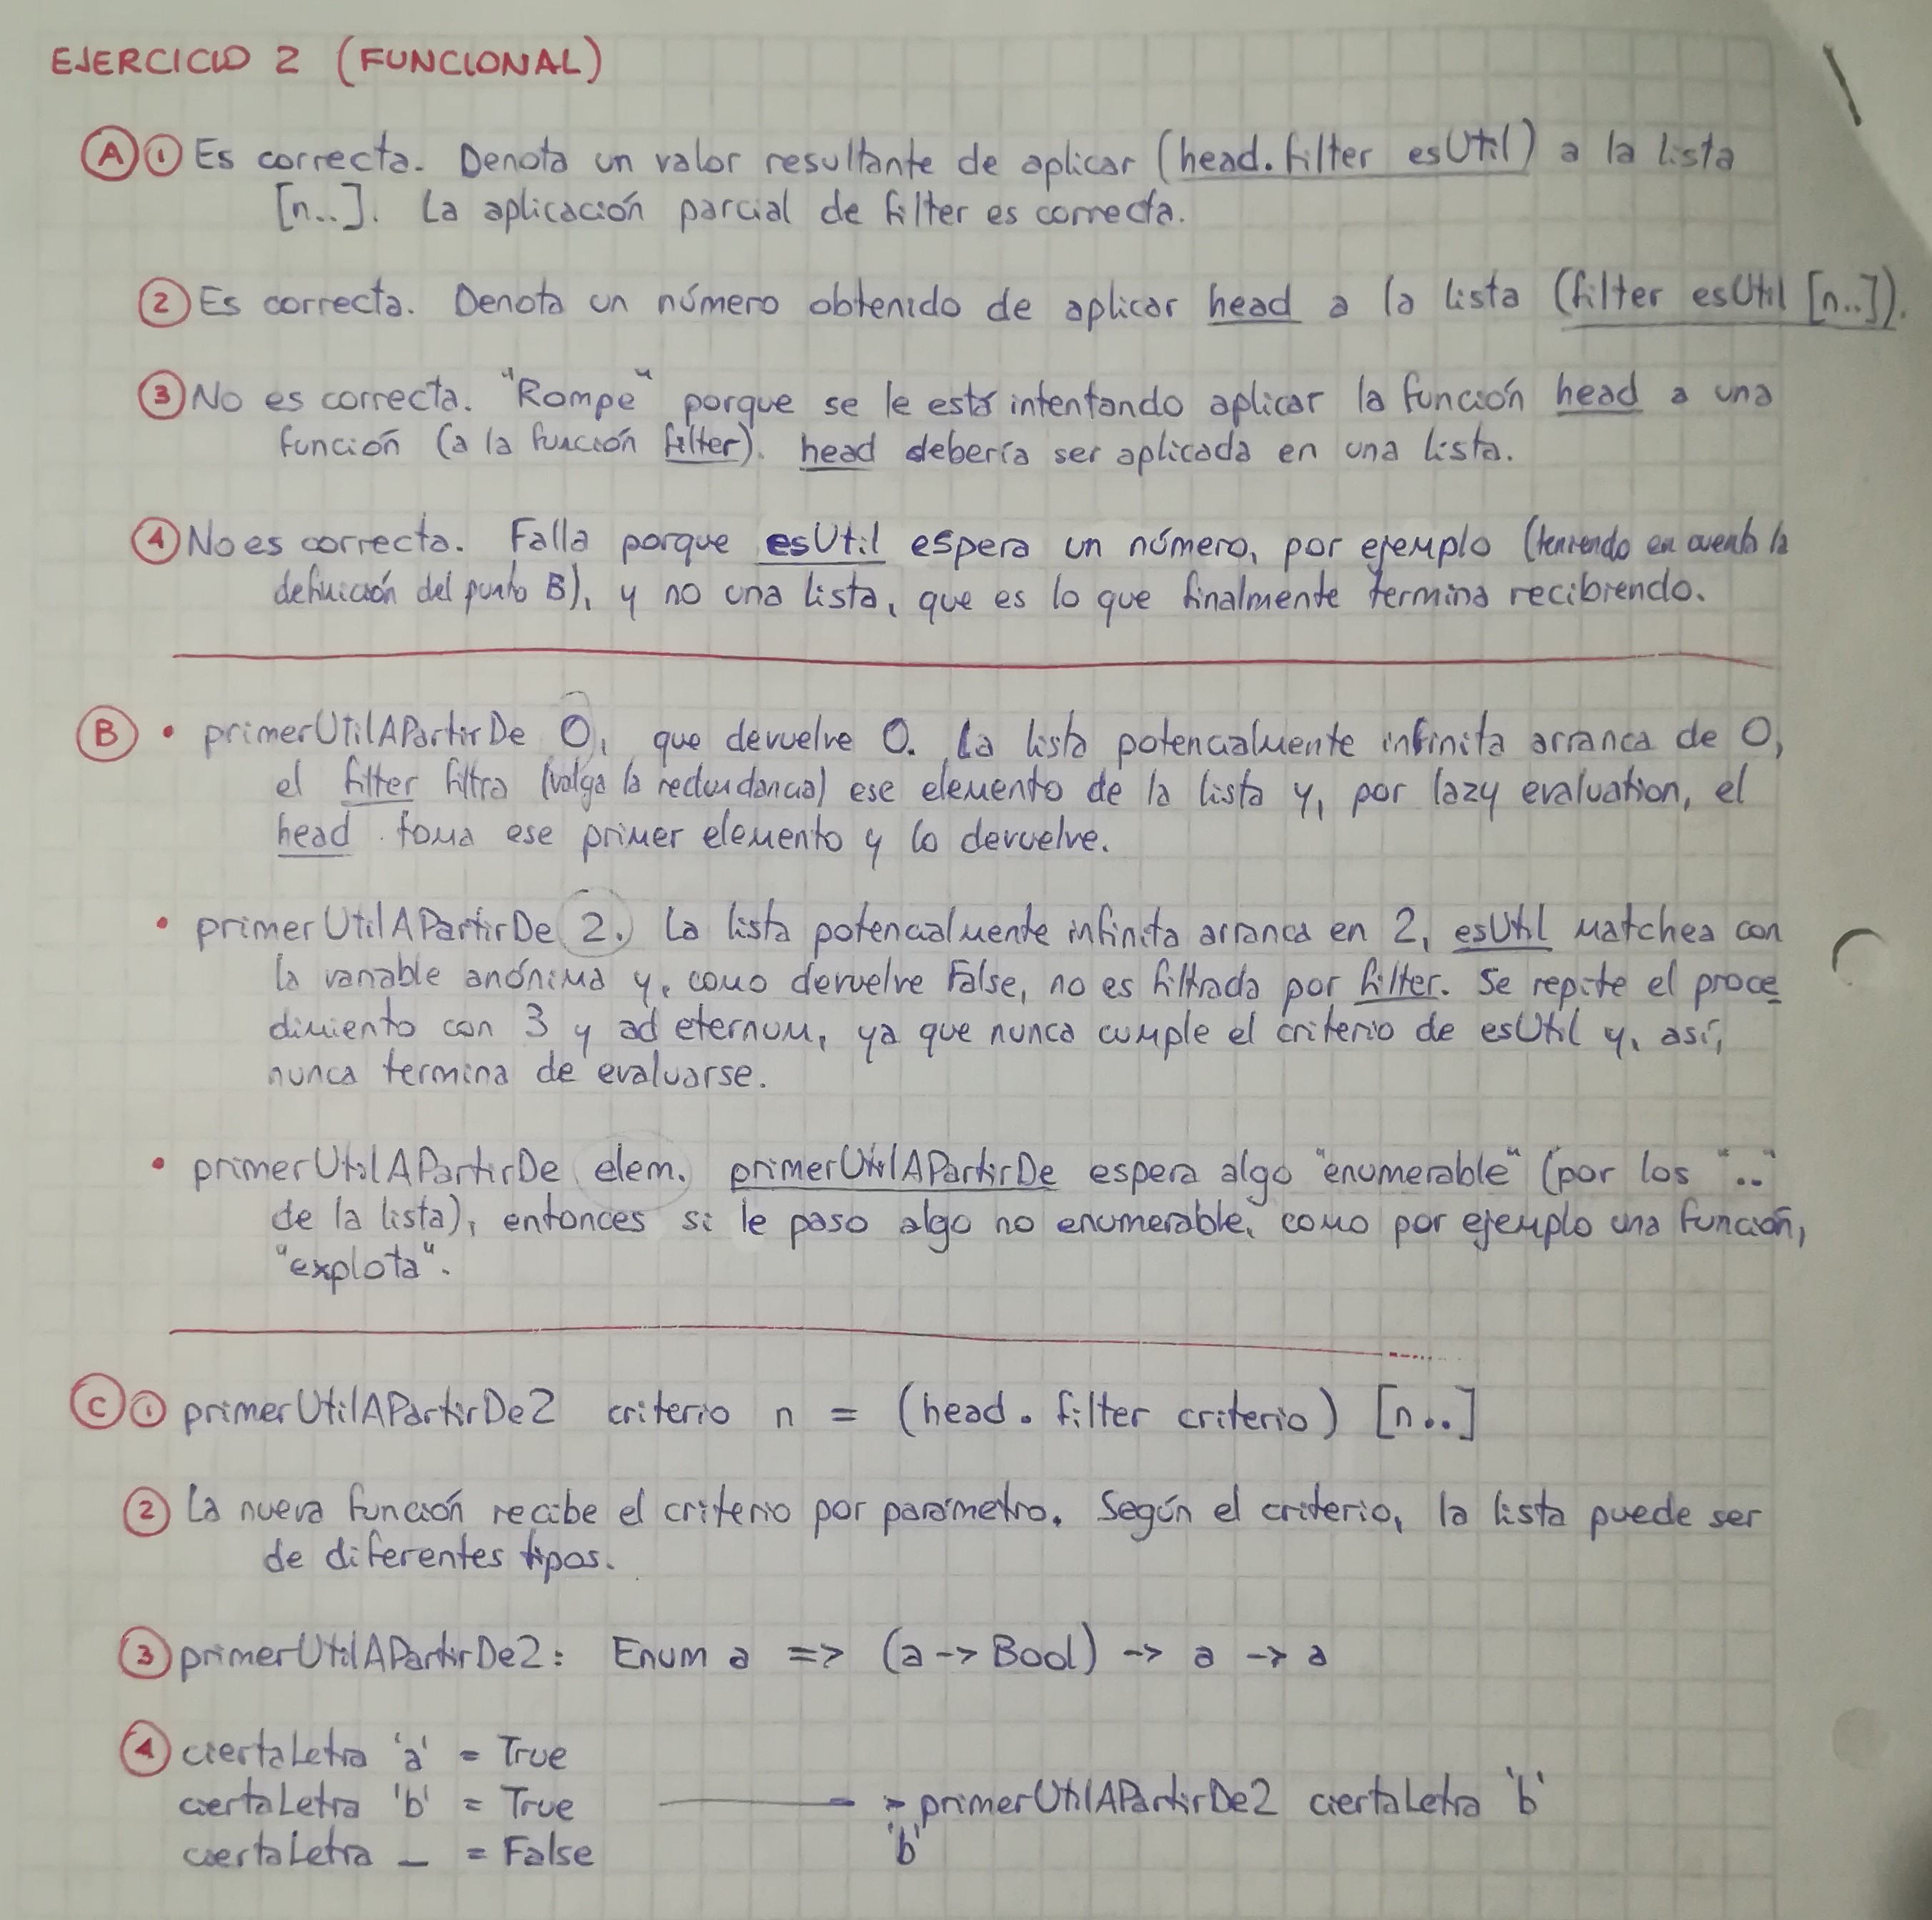 EJERCICIO 2 (FUNCIONAL)
A 1 Es correcta. Denota un valor resultante de aplicar (head.filter esUtil) a la lista
[n..]. La aplicación parcial de filter es correcta.
2 Es correcta. Denota un número obtenido de aplicar head a la lista (filter esUtil [n..]).
3 No es correcta. "Rompe" porque se le está intentando aplicar la función head a una
función (a la función filter). head debería ser aplicada en una lista.
4 No es correcta. Falla porque esUtil espera un número, por ejemplo (teniendo en cuenta la
definición del punto B), y no una lista, que es lo que finalmente termina recibiendo.
B • primerUtilAPartirDe 0, que devuelve 0. La lista potencialmente infinita arranca de 0,
el filter filtra (valga la redundancia) ese elemento de la lista y, por lazy evaluation, el
head toma ese primer elemento y lo devuelve.
• primerUtilAPartirDe 2. La lista potencialmente infinita arranca en 2, esUtil matchea con
la variable anónima y, como devuelve False, no es filtrada por filter. Se repite el proce
dimiento con 3 y ad eternum, ya que nunca cumple el criterio de esUtil y, así,
nunca termina de evaluarse.
• primerUtilAPartirDe elem. primerUtilAPartirDe espera algo "enumerable" (por los ".."
de la lista), entonces si le paso algo no enumerable, como por ejemplo una función,
"explota".
C 1 primerUtilAPartirDe2 criterio n = (head . filter criterio) [n..]
2 La nueva función recibe el criterio por parámetro. Según el criterio, la lista puede ser
de diferentes tipos.
3 primerUtilAPartirDe2: Enum a => (a -> Bool) -> a -> a
4 ciertaLetra 'a' = True
ciertaLetra 'b' = True > primerUtilAPartirDe2 ciertaLetra 'b'
ciertaLetra _ = False 'b'